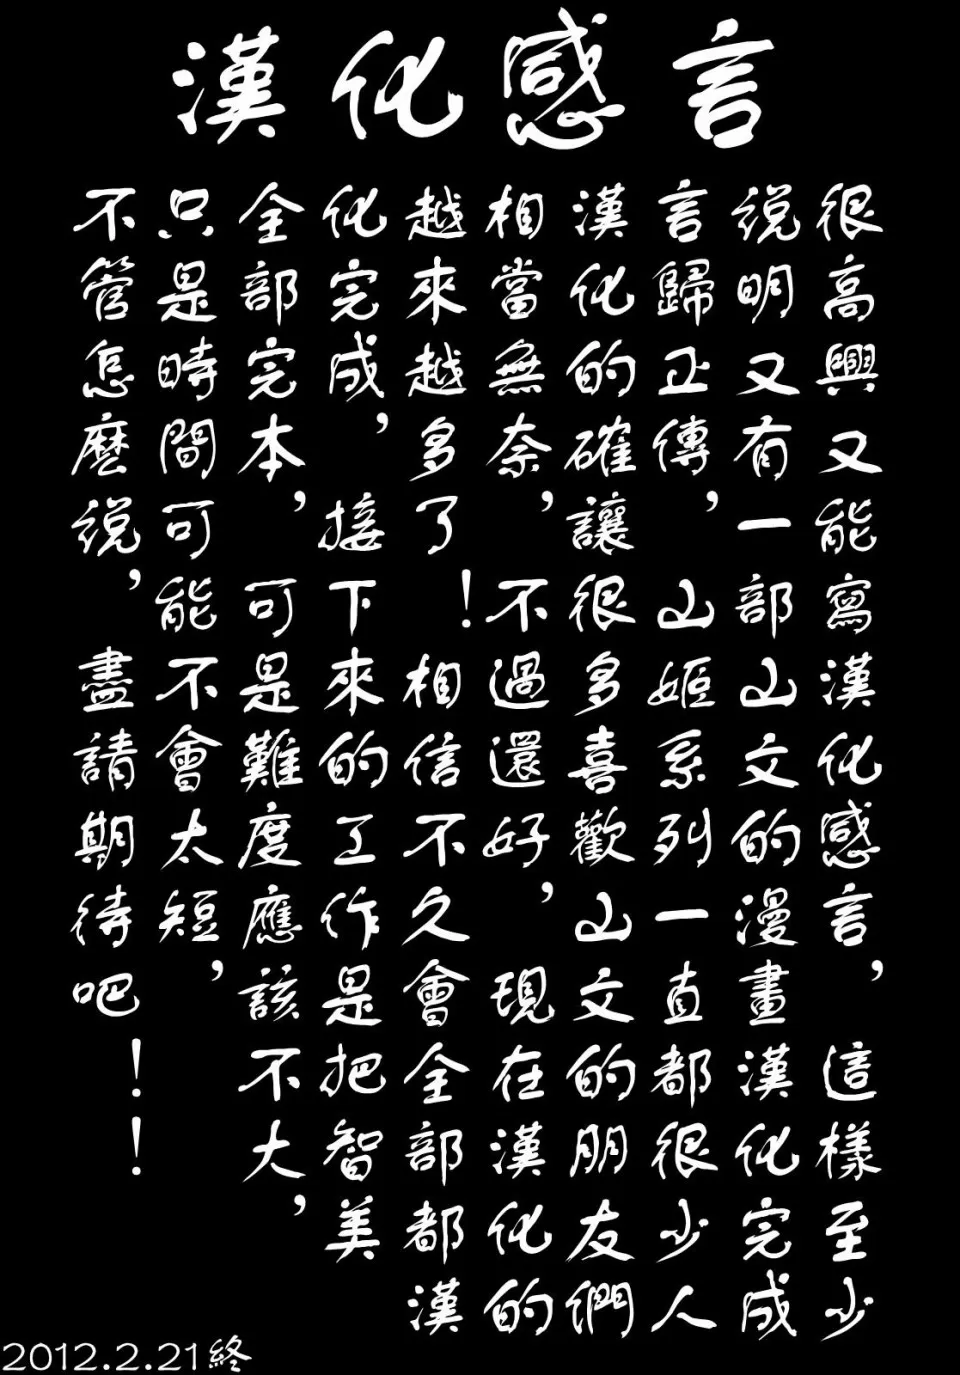 漢化感言
很高興又能寫漢化感言，這樣至少
説明又有一部山文的漫畫漢化完成
言歸正傳，山姬系列一直都很少人
漢化的確讓很多喜歡山文的朋友們
相當無奈，不過還好，現在漢化的
越來越多了！相信不久會全部都漢
化完成，接下來的工作是把智美
全部完本，可是難度應該不大，
只是時間可能不會太短，
不管怎麽説，盡請期待吧！！
2012.2.21終